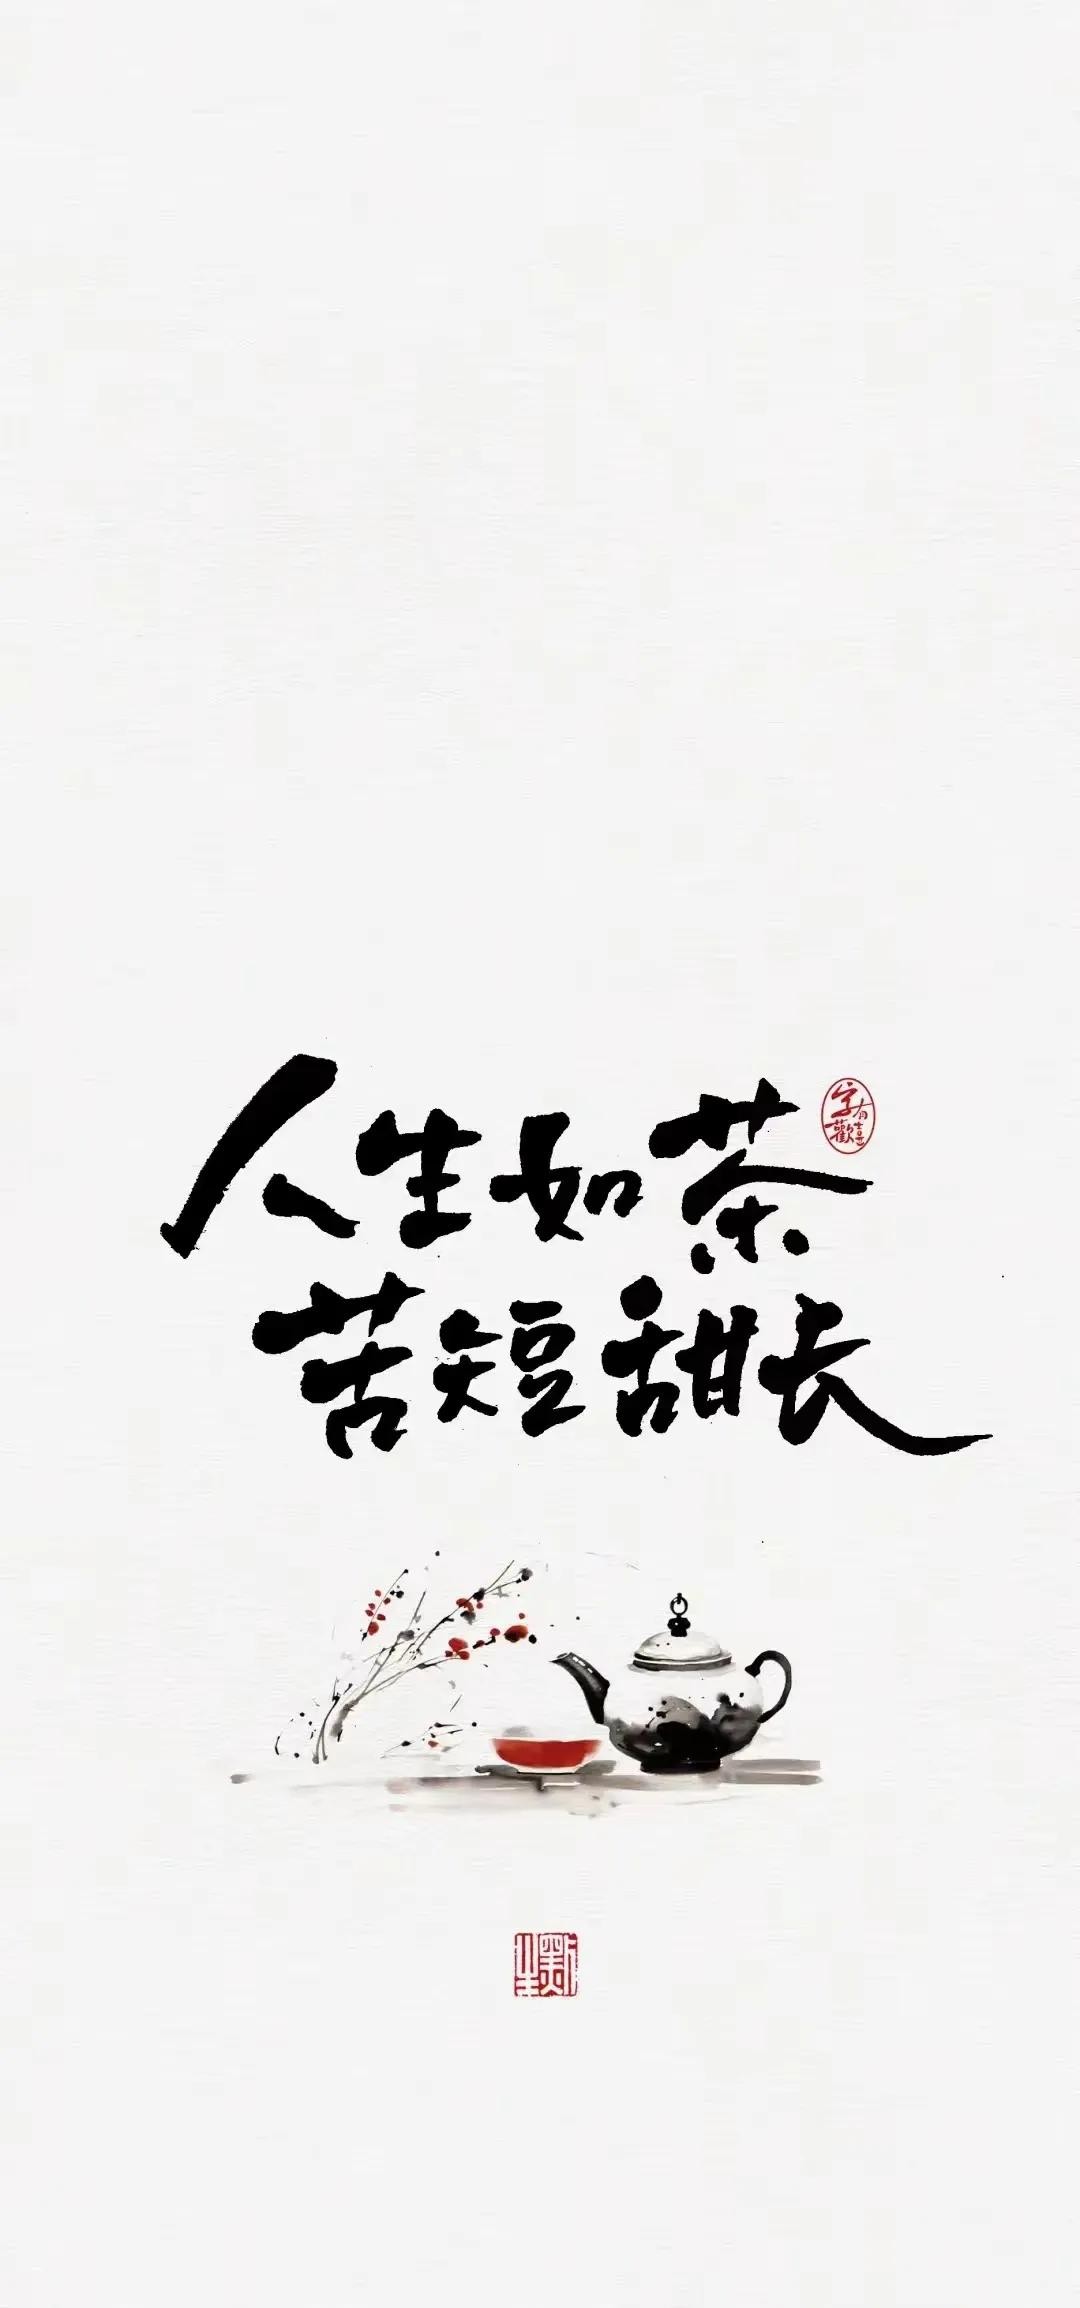 人生如茶
字有歡喜
苦短甜长